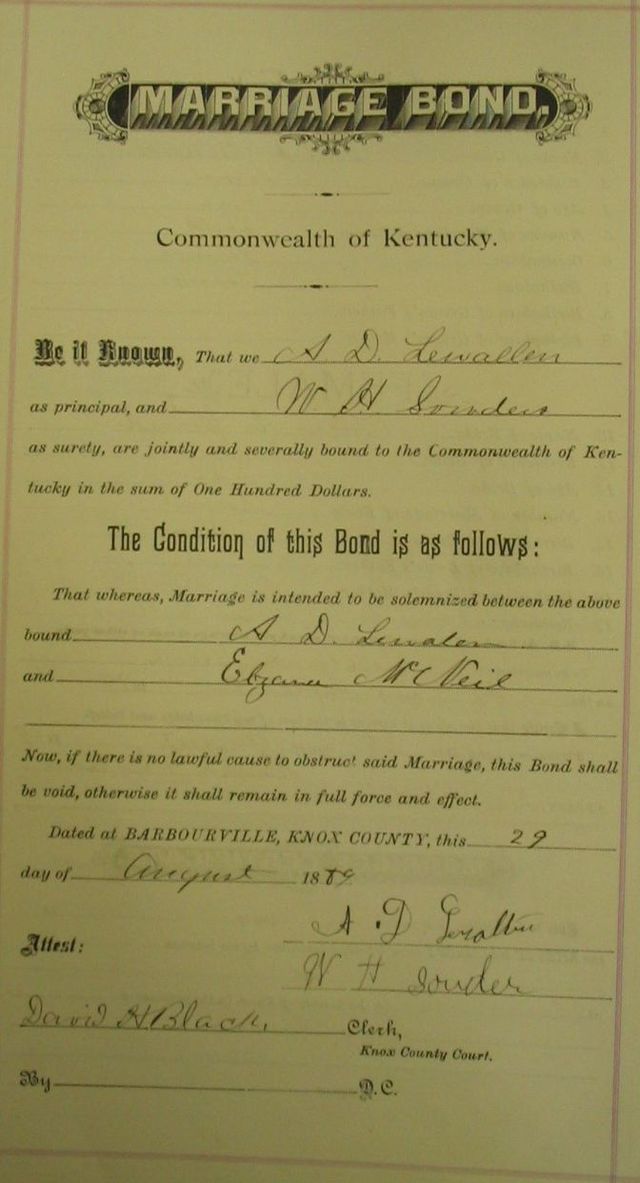 MARRIAGE BOND.
Commonwealth of Kentucky.
Be it Known, That we A D. Lewallen
as principal, and W H Souders
as surety, are jointly and severally bound to the Commonwealth of Ken-
tucky in the sum of One Hundred Dollars.
The Condition of this Bond is as follows:
That whereas, Marriage is intended to be solemnized between the above
bound A D.
and McNeil
Now, if there is no lawful cause to obstruct said Marriage, this Bond shall
be void, otherwise it shall remain in full force and effect.
Dated at BARBOURVILLE, KNOX COUNTY, this 29
day of August 1889
A. D
Attest:
W H Souder
David H Black, Clerk,
Knox County Court.
By D.C.